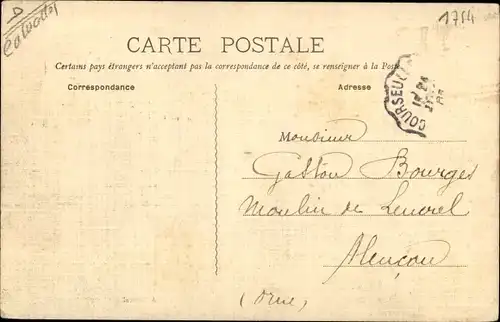 Calvados
1754
CARTE POSTALE
Certains pays étrangers n'acceptant pas la correspondance de ce côté, se renseigner à la Poste
Correspondance
Adresse
COURSEULL
Monsieur
Gaston Bourges
Moulin de
Alençon
(Orne)